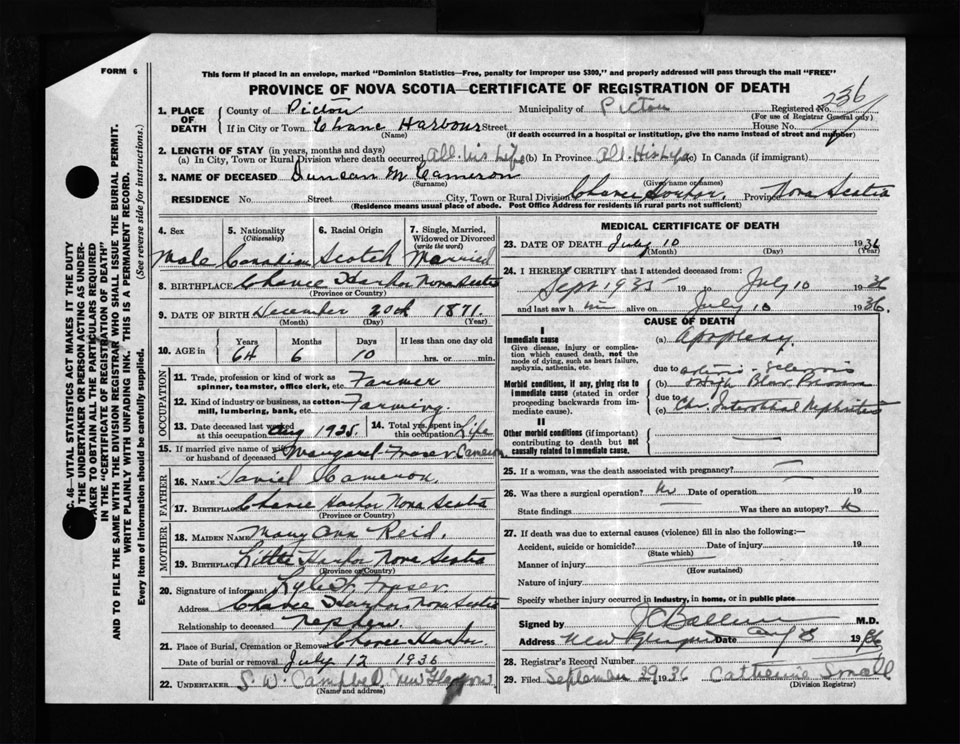 FORM 6
This form if placed in an envelope, marked "Dominion Statistics—Free, penalty for improper use $300," and properly addressed will pass through the mail "FREE"
PROVINCE OF NOVA SCOTIA—CERTIFICATE OF REGISTRATION OF DEATH
1. PLACE OF DEATH County of Pictou Municipality of Pictou Registered No. 236
(For use of Registrar General only)
If in City or Town Chance Harbour Street House No.
(Name) (If death occurred in a hospital or institution, give the name instead of street and number)
2. LENGTH OF STAY (in years, months and days)
(a) In City, Town or Rural Division where death occurred All his Life (b) In Province All His Life (c) In Canada (if immigrant)
3. NAME OF DECEASED Duncan M Cameron
(Surname) (Given name or names)
RESIDENCE No. Street City, Town or Rural Division Chance Harbor, Province Nova Scotia
(Residence means usual place of abode. Post Office Address for residents in rural parts not sufficient)
4. Sex 5. Nationality (Citizenship) 6. Racial Origin 7. Single, Married, Widowed or Divorced (write the word)
Male Canadian Scotch Married
8. BIRTHPLACE Chance Harbor Nova Scotia
(Province or Country)
9. DATE OF BIRTH December 20th 1871.
(Month) (Day) (Year)
10. AGE in Years Months Days If less than one day old
64 6 10 hrs. or min.
OCCUPATION
11. Trade, profession or kind of work as spinner, teamster, office clerk, etc. Farmer
12. Kind of industry or business, as cotton-mill, lumbering, bank, etc. Farming.
13. Date deceased last worked at this occupation Aug 1935. 14. Total yrs. spent in this occupation Life
15. If married give name of wife or husband of deceased Margaret Fraser Cameron
FATHER
16. NAME Daniel Cameron
17. BIRTHPLACE Chance Harbor Nova Scotia
(Province or Country)
MOTHER
18. MAIDEN NAME Mary Ann Reid.
19. BIRTHPLACE Little Harbor Nova Scotia
(Province or Country)
20. Signature of informant Fraser
Address Chance Harbor Nova Scotia
Relationship to deceased Nephew
21. Place of Burial, Cremation or Removal Chance Harbor
Date of burial or removal July 12 1936
22. UNDERTAKER S. W. Campbell, New Glasgow
(Name and address)
MEDICAL CERTIFICATE OF DEATH
23. DATE OF DEATH July 10 1936
(Month) (Day) (Year)
24. I HEREBY CERTIFY that I attended deceased from:
Sept 1935 19 to July 10 1936
and last saw him alive on July 10 1936.
CAUSE OF DEATH
I
Immediate cause
Give disease, injury or complication which caused death, not the mode of dying, such as heart failure, asphyxia, asthenia, etc.
(a) Apoplexy.
due to arterio-Sclerosis
Morbid conditions, if any, giving rise to immediate cause (stated in order proceeding backwards from immediate cause).
(b) High Blood Pressure
due to
(c) Chr. Interstitial Nephritis
II
Other morbid conditions (if important) contributing to death but not causally related to immediate cause.
25. If a woman, was the death associated with pregnancy?
26. Was there a surgical operation? No Date of operation 19
State findings Was there an autopsy? No
27. If death was due to external causes (violence) fill in also the following:—
Accident, suicide or homicide? Date of injury 19
(State which)
Manner of injury
(How sustained)
Nature of injury
Specify whether injury occurred in industry, in home, or in public place
Signed by M.D.
Address New Glasgow Date Aug 8 1936
28. Registrar's Record Number
29. Filed September 29 1936 Catherine Small
(Division Registrar)
G. 46—VITAL STATISTICS ACT MAKES IT THE DUTY
THE UNDERTAKER OR PERSON ACTING AS UNDER-
TAKER TO OBTAIN ALL THE PARTICULARS REQUIRED
IN THE "CERTIFICATE OF REGISTRATION OF DEATH"
AND TO FILE THE SAME WITH THE DIVISION REGISTRAR WHO SHALL ISSUE THE BURIAL PERMIT.
WRITE PLAINLY WITH UNFADING INK. THIS IS A PERMANENT RECORD.
Every item of information should be carefully supplied. (See reverse side for instructions.)